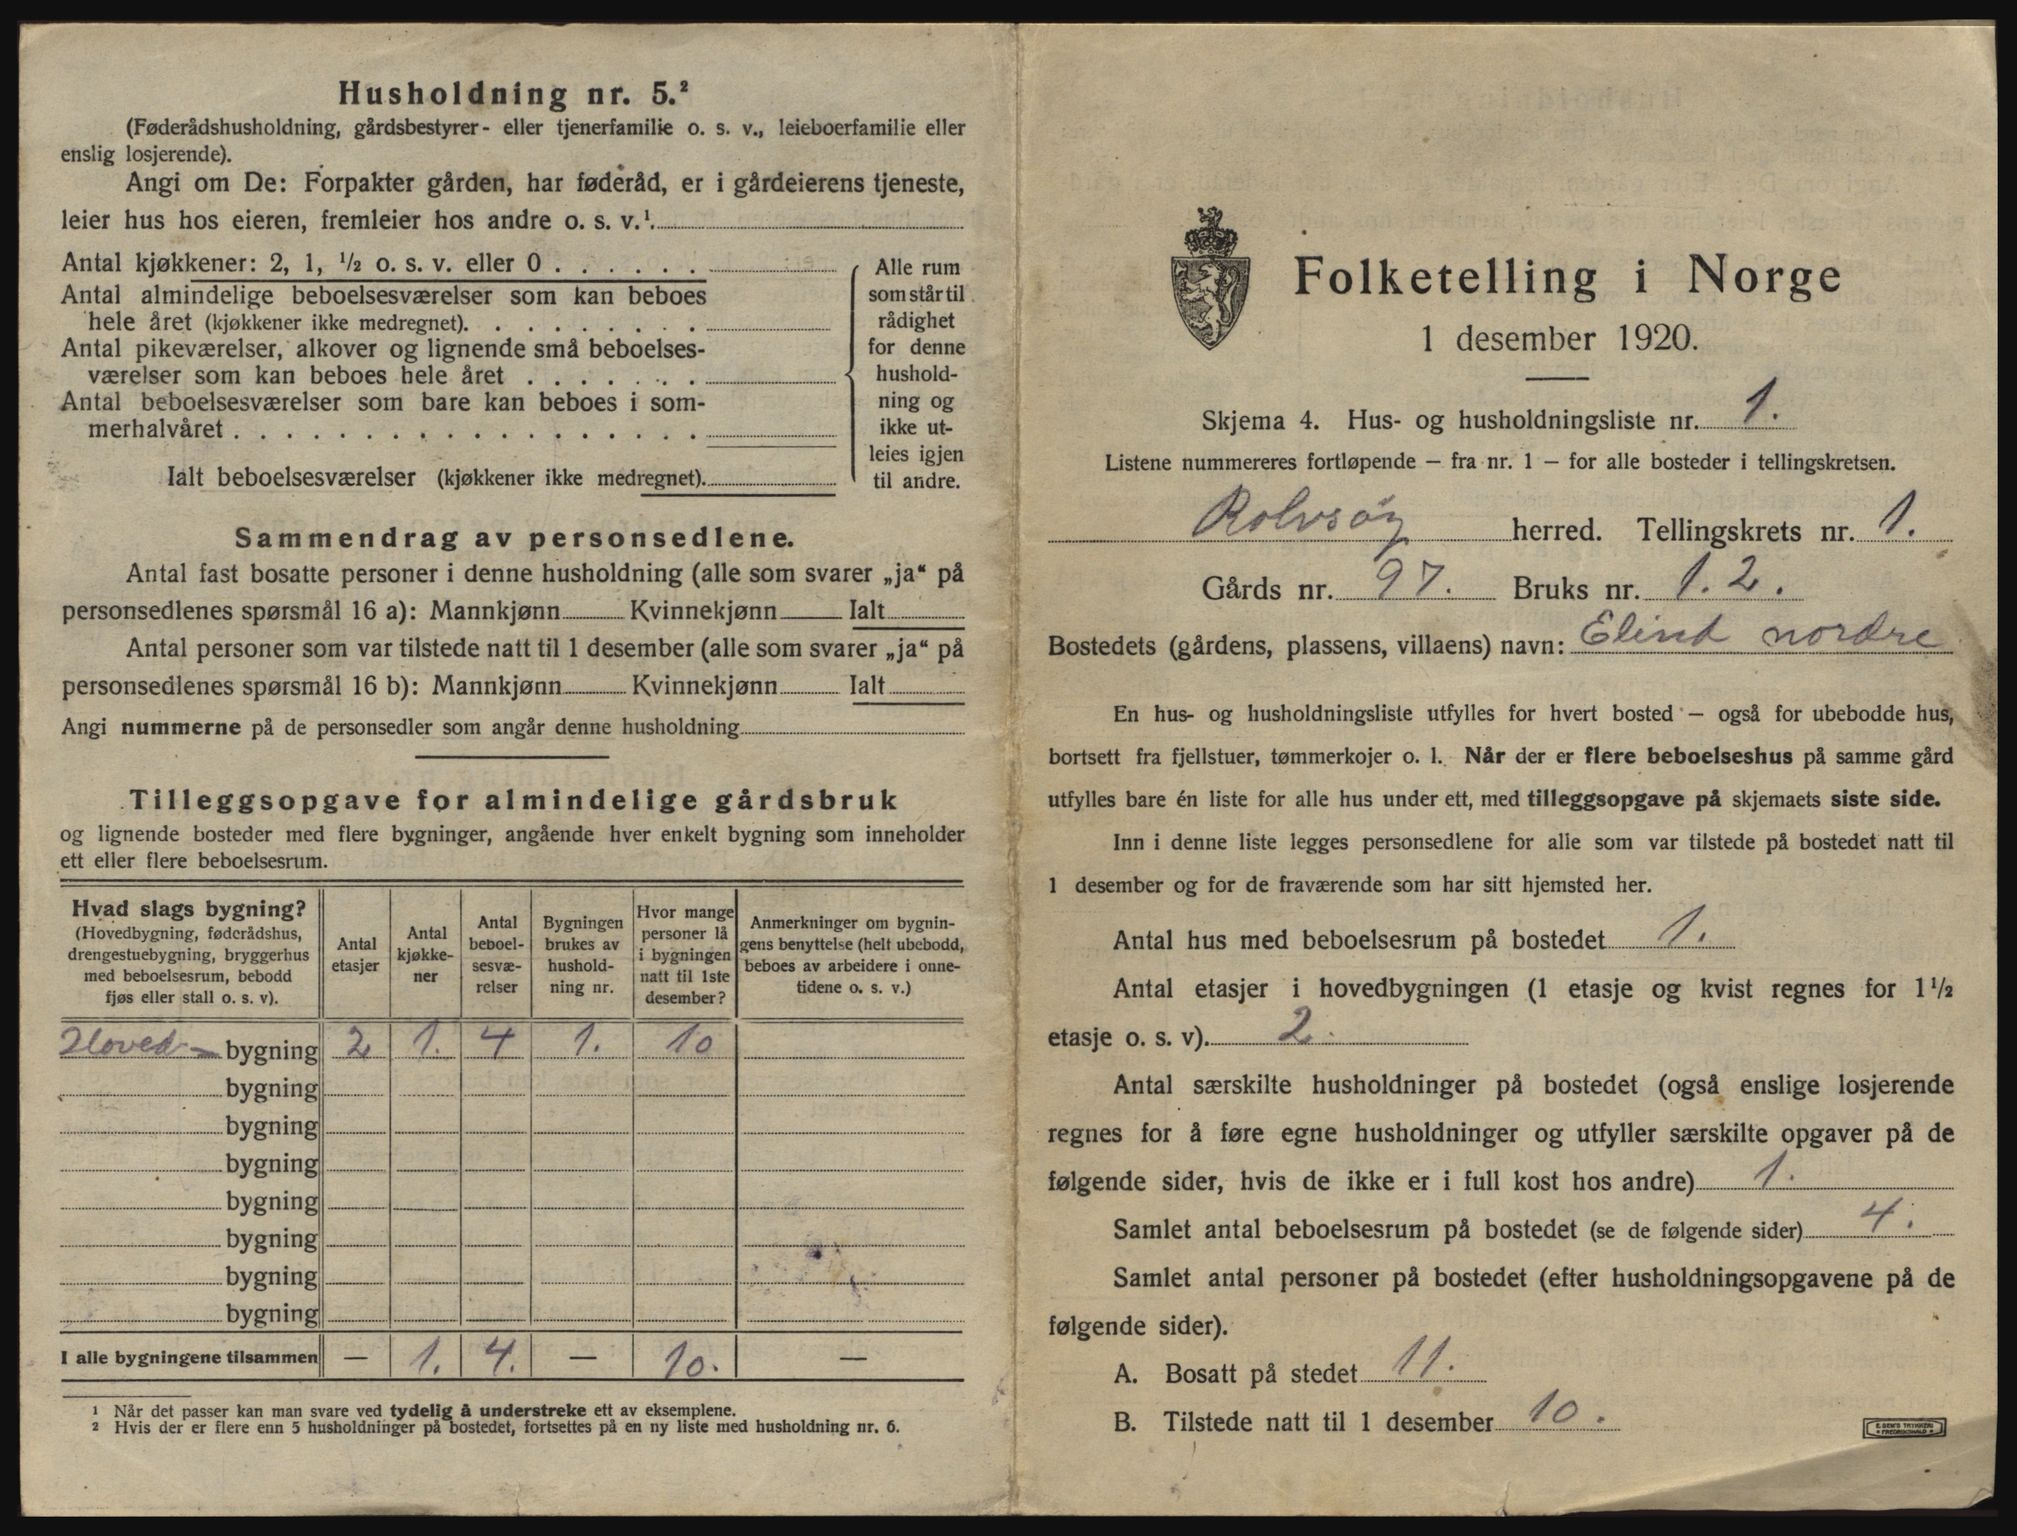 Husholdning nr. 5.²
(Føderådshusholdning, gårdsbestyrer- eller tjenerfamilie o. s. v., leieboerfamilie eller
enslig losjerende).
Angi om De: Forpakter gården, har føderåd, er i gårdeierens tjeneste,
leier hus hos eieren, fremleier hos andre o. s. v.¹.
Antal kjøkkener: 2, 1, ½ o. s. v. eller 0 . . . . . .
Antal almindelige beboelsesværelser som kan beboes
hele året (kjøkkener ikke medregnet). . . . . . . . .
Antal pikeværelser, alkover og lignende små beboelses-
værelser som kan beboes hele året . . . . . . .
Antal beboelsesværelser som bare kan beboes i som-
merhalvåret . . . . . . . . . . . . . . . . . .
Ialt beboelsesværelser (kjøkkener ikke medregnet).
Alle rum
som står til
rådighet
for denne
hushold-
ning og
ikke ut-
leies igjen
til andre.
Sammendrag av personsedlene.
Antal fast bosatte personer i denne husholdning (alle som svarer „ja“ på
personsedlenes spørsmål 16 a): Mannkjønn Kvinnekjønn Ialt
Antal personer som var tilstede natt til 1 desember (alle som svarer „ja“ på
personsedlenes spørsmål 16 b): Mannkjønn Kvinnekjønn Ialt
Angi nummerne på de personsedler som angår denne husholdning
Tilleggsopgave for almindelige gårdsbruk
og lignende bosteder med flere bygninger, angående hver enkelt bygning som inneholder
ett eller flere beboelsesrum.
Hvad slags bygning?
(Hovedbygning, føderådshus,
drengestuebygning, bryggerhus
med beboelsesrum, bebodd
fjøs eller stall o. s. v).
Antal
etasjer
Antal
kjøkke-
ner
Antal
beboel-
sesvæ-
relser
Bygningen
brukes av
hushold-
ning nr.
Hvor mange
personer lå
i bygningen
natt til 1ste
desember?
Anmerkninger om bygnin-
gens benyttelse (helt ubebodd,
beboes av arbeidere i onne-
tidene o. s. v.)
Hoved- bygning 2 1. 4 1. 10
bygning
bygning
bygning
bygning
bygning
bygning
bygning
I alle bygningene tilsammen — 1. 4. — 10. —
¹ Når det passer kan man svare ved tydelig å understreke ett av eksemplene.
² Hvis der er flere enn 5 husholdninger på bostedet, fortsettes på en ny liste med husholdning nr. 6.
Folketelling i Norge
1 desember 1920.
Skjema 4. Hus- og husholdningsliste nr. 1.
Listene nummereres fortløpende — fra nr. 1 — for alle bosteder i tellingskretsen.
Rolvsøy herred. Tellingskrets nr. 1.
Gårds nr. 97. Bruks nr. 1. 2.
Bostedets (gårdens, plassens, villaens) navn: Elind nordre
En hus- og husholdningsliste utfylles for hvert bosted — også for ubebodde hus,
bortsett fra fjellstuer, tømmerkojer o. l. Når der er flere beboelseshus på samme gård
utfylles bare én liste for alle hus under ett, med tilleggsopgave på skjemaets siste side.
Inn i denne liste legges personsedlene for alle som var tilstede på bostedet natt til
1 desember og for de fraværende som har sitt hjemsted her.
Antal hus med beboelsesrum på bostedet 1.
Antal etasjer i hovedbygningen (1 etasje og kvist regnes for 1½
etasje o. s. v). 2.
Antal særskilte husholdninger på bostedet (også enslige losjerende
regnes for å føre egne husholdninger og utfyller særskilte opgaver på de
følgende sider, hvis de ikke er i full kost hos andre) 1.
Samlet antal beboelsesrum på bostedet (se de følgende sider) 4.
Samlet antal personer på bostedet (efter husholdningsopgavene på de
følgende sider).
A. Bosatt på stedet 11.
B. Tilstede natt til 1 desember 10.